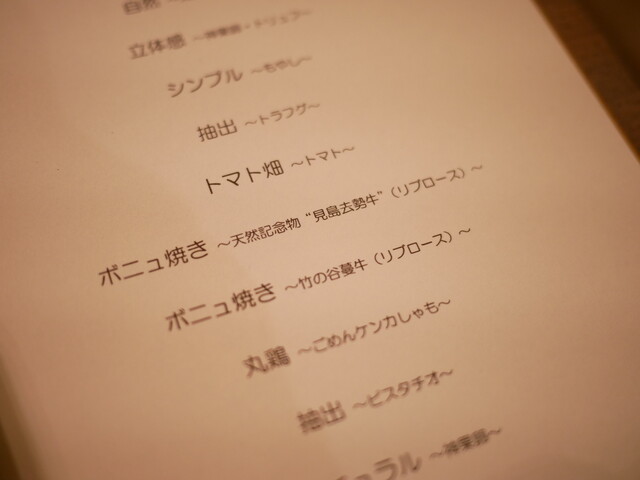 自然 ～
立体感 ～神業器・トリュフ～
シンプル ～もやし～
抽出 ～トラフグ～
トマト畑 ～トマト～
ボニュ焼き ～天然記念物“見島去勢牛”（リブロース）～
ボニュ焼き ～竹の谷蔓牛（リブロース）～
丸鶏 ～ごめんケンカしゃも～
抽出 ～ピスタチオ～
ュラル ～